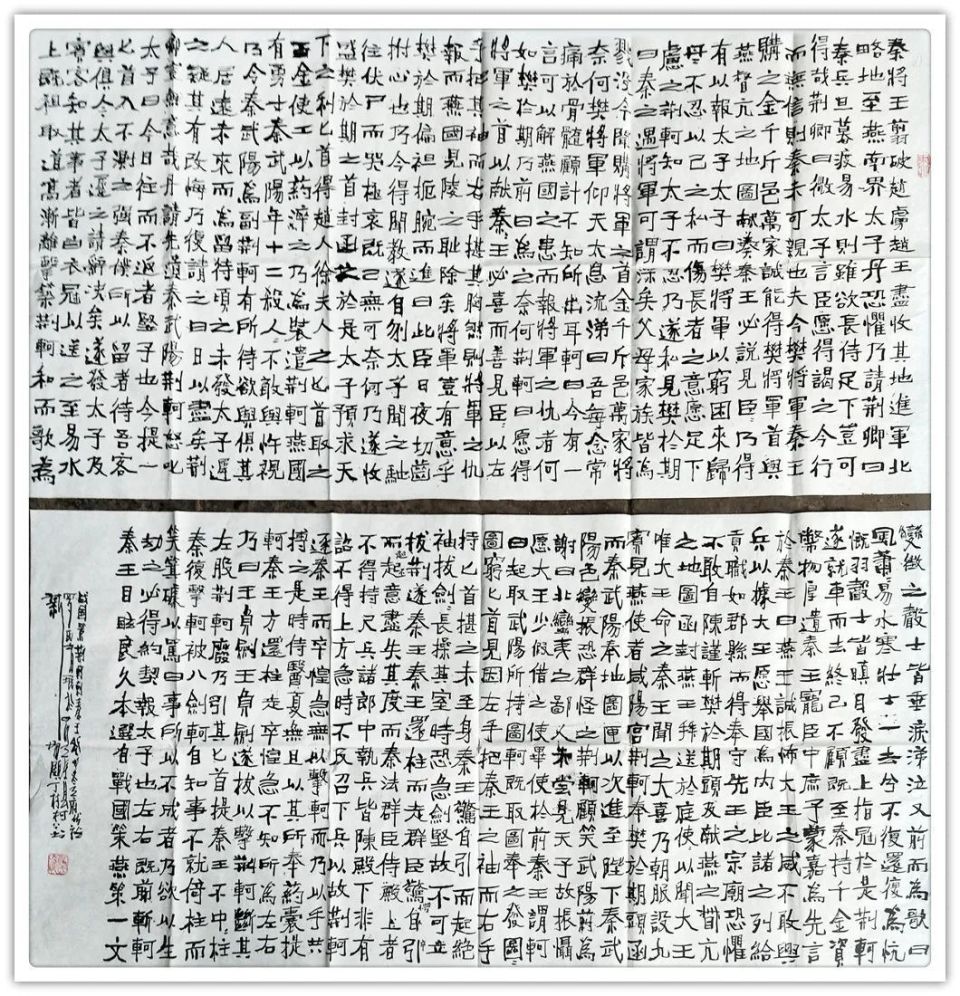 秦將王翦破趙虜趙王盡收其地進軍北
略地至燕南界太子丹恐懼乃請荊卿曰
秦兵旦暮渡易水則雖欲長侍足下豈可
得哉荊卿曰微太子言臣愿得謁之今行
而無信則秦未可親也夫今樊將軍秦王
購之金千斤邑萬家誠能得樊將軍首與
燕督亢之地圖獻秦秦王必說見臣臣乃得
有以報太子太子曰樊將軍以窮困來歸
丹丹不忍以己之私而傷長者之意愿足下
慮之荊軻知太子不忍乃遂私見樊於期
曰秦之遇將軍可謂深矣父母家族皆為
戮沒今聞購將軍之首金千斤邑萬家將
奈何樊將軍仰天太息流涕曰吾每念常
痛於骨髓顧計不知所出耳軻曰今有一
言可以解燕國之患而報將軍之仇者何
如樊於期乃前曰為之奈何荊軻曰愿得
將軍之首以獻秦王必喜而善見臣臣左
手把其袖而右手揕其胸然則將軍之仇
報而燕國見陵之恥除矣將軍豈有意乎
樊於期偏袒扼腕而進曰此臣日夜切齒
拊心也乃今得聞教遂自刎太子聞之馳
往伏尸而哭極哀既已無可奈何乃遂收
盛樊於期之首封函之於是太子預求天
下之利匕首得趙人徐夫人之匕首取之
百金使工以药淬之乃為裝遣荊軻燕國
有勇士秦武陽年十二殺人人不敢與忤視
乃令秦武陽為副荊軻有所待欲與俱其
人居遠未來而為留待頃之未發太子遲
之疑其有改悔乃復請之曰日以盡矣荊
卿豈無意哉丹請先遣秦武陽荊軻怒叱
太子曰今日往而不返者豎子也今提一
匕首入不測之強秦僕所以留者待吾客
與俱今太子遲之請辭決矣遂發太子及
賓客知其事者皆白衣冠以送之至易水
上既祖取道高漸離擊築荊軻和而歌為
變徵之聲士皆垂淚涕泣又前而為歌曰
風蕭易水寒壯士一去兮不復還復為忼
慨羽聲士皆瞋目發盡上指冠於是荊軻
遂就車而去終已不顧既至秦持千金資
幣物厚遺秦王寵臣中庶子蒙嘉為先言
於秦王曰燕王誠振怖大王之威不敢興
兵以據大王愿舉國為內臣比諸之列給
貢職如郡縣而得奉守先王之宗廟恐懼
不敢自陳謹斬樊於期頭及獻燕之督亢
之地圖函封燕王拜送於庭使以聞大王
唯大王命之秦王聞之大喜乃朝服設九
賓見燕使者咸陽宮荊軻奉樊於期頭函
而秦武陽奉地圖匣以次進至陛下秦武
陽色變振恐群臣怪之荊軻顧笑武陽前為
謝曰北蠻夷之鄙人未嘗見天子故振慴
愿大王少假借之使畢使於前秦王謂軻
曰起取武陽所持圖軻既取圖奉之發圖
圖窮匕首見因左手把秦王之袖而右手
持匕首揕之未至身秦王驚自引而起絕
袖拔劍長操其室時恐急劍堅故不可立
拔荊逐秦王秦王還柱而走群臣驚愕
而起意盡失其度而秦法群臣侍殿上者
不得持尺兵諸郎中執兵皆陳殿下非有
詔不得上方急時不及召下兵以故荊軻
逐秦王而卒惶急無以擊軻而乃以手共
搏之是時侍醫夏無且以其所奉药囊提
軻秦王方還柱走卒惶急不知所為左右
乃曰王負劍王負劍遂拔以擊荊軻斷其
左股荊軻廢乃引其匕首提秦王不中中柱
秦復擊軻被八創軻自知事不就倚柱而
笑箕踞以罵曰事所以不成者乃欲以生
劫之必得約契以報太子也左右既前斬軻
秦王目眩良久本選自戰國策燕第一文